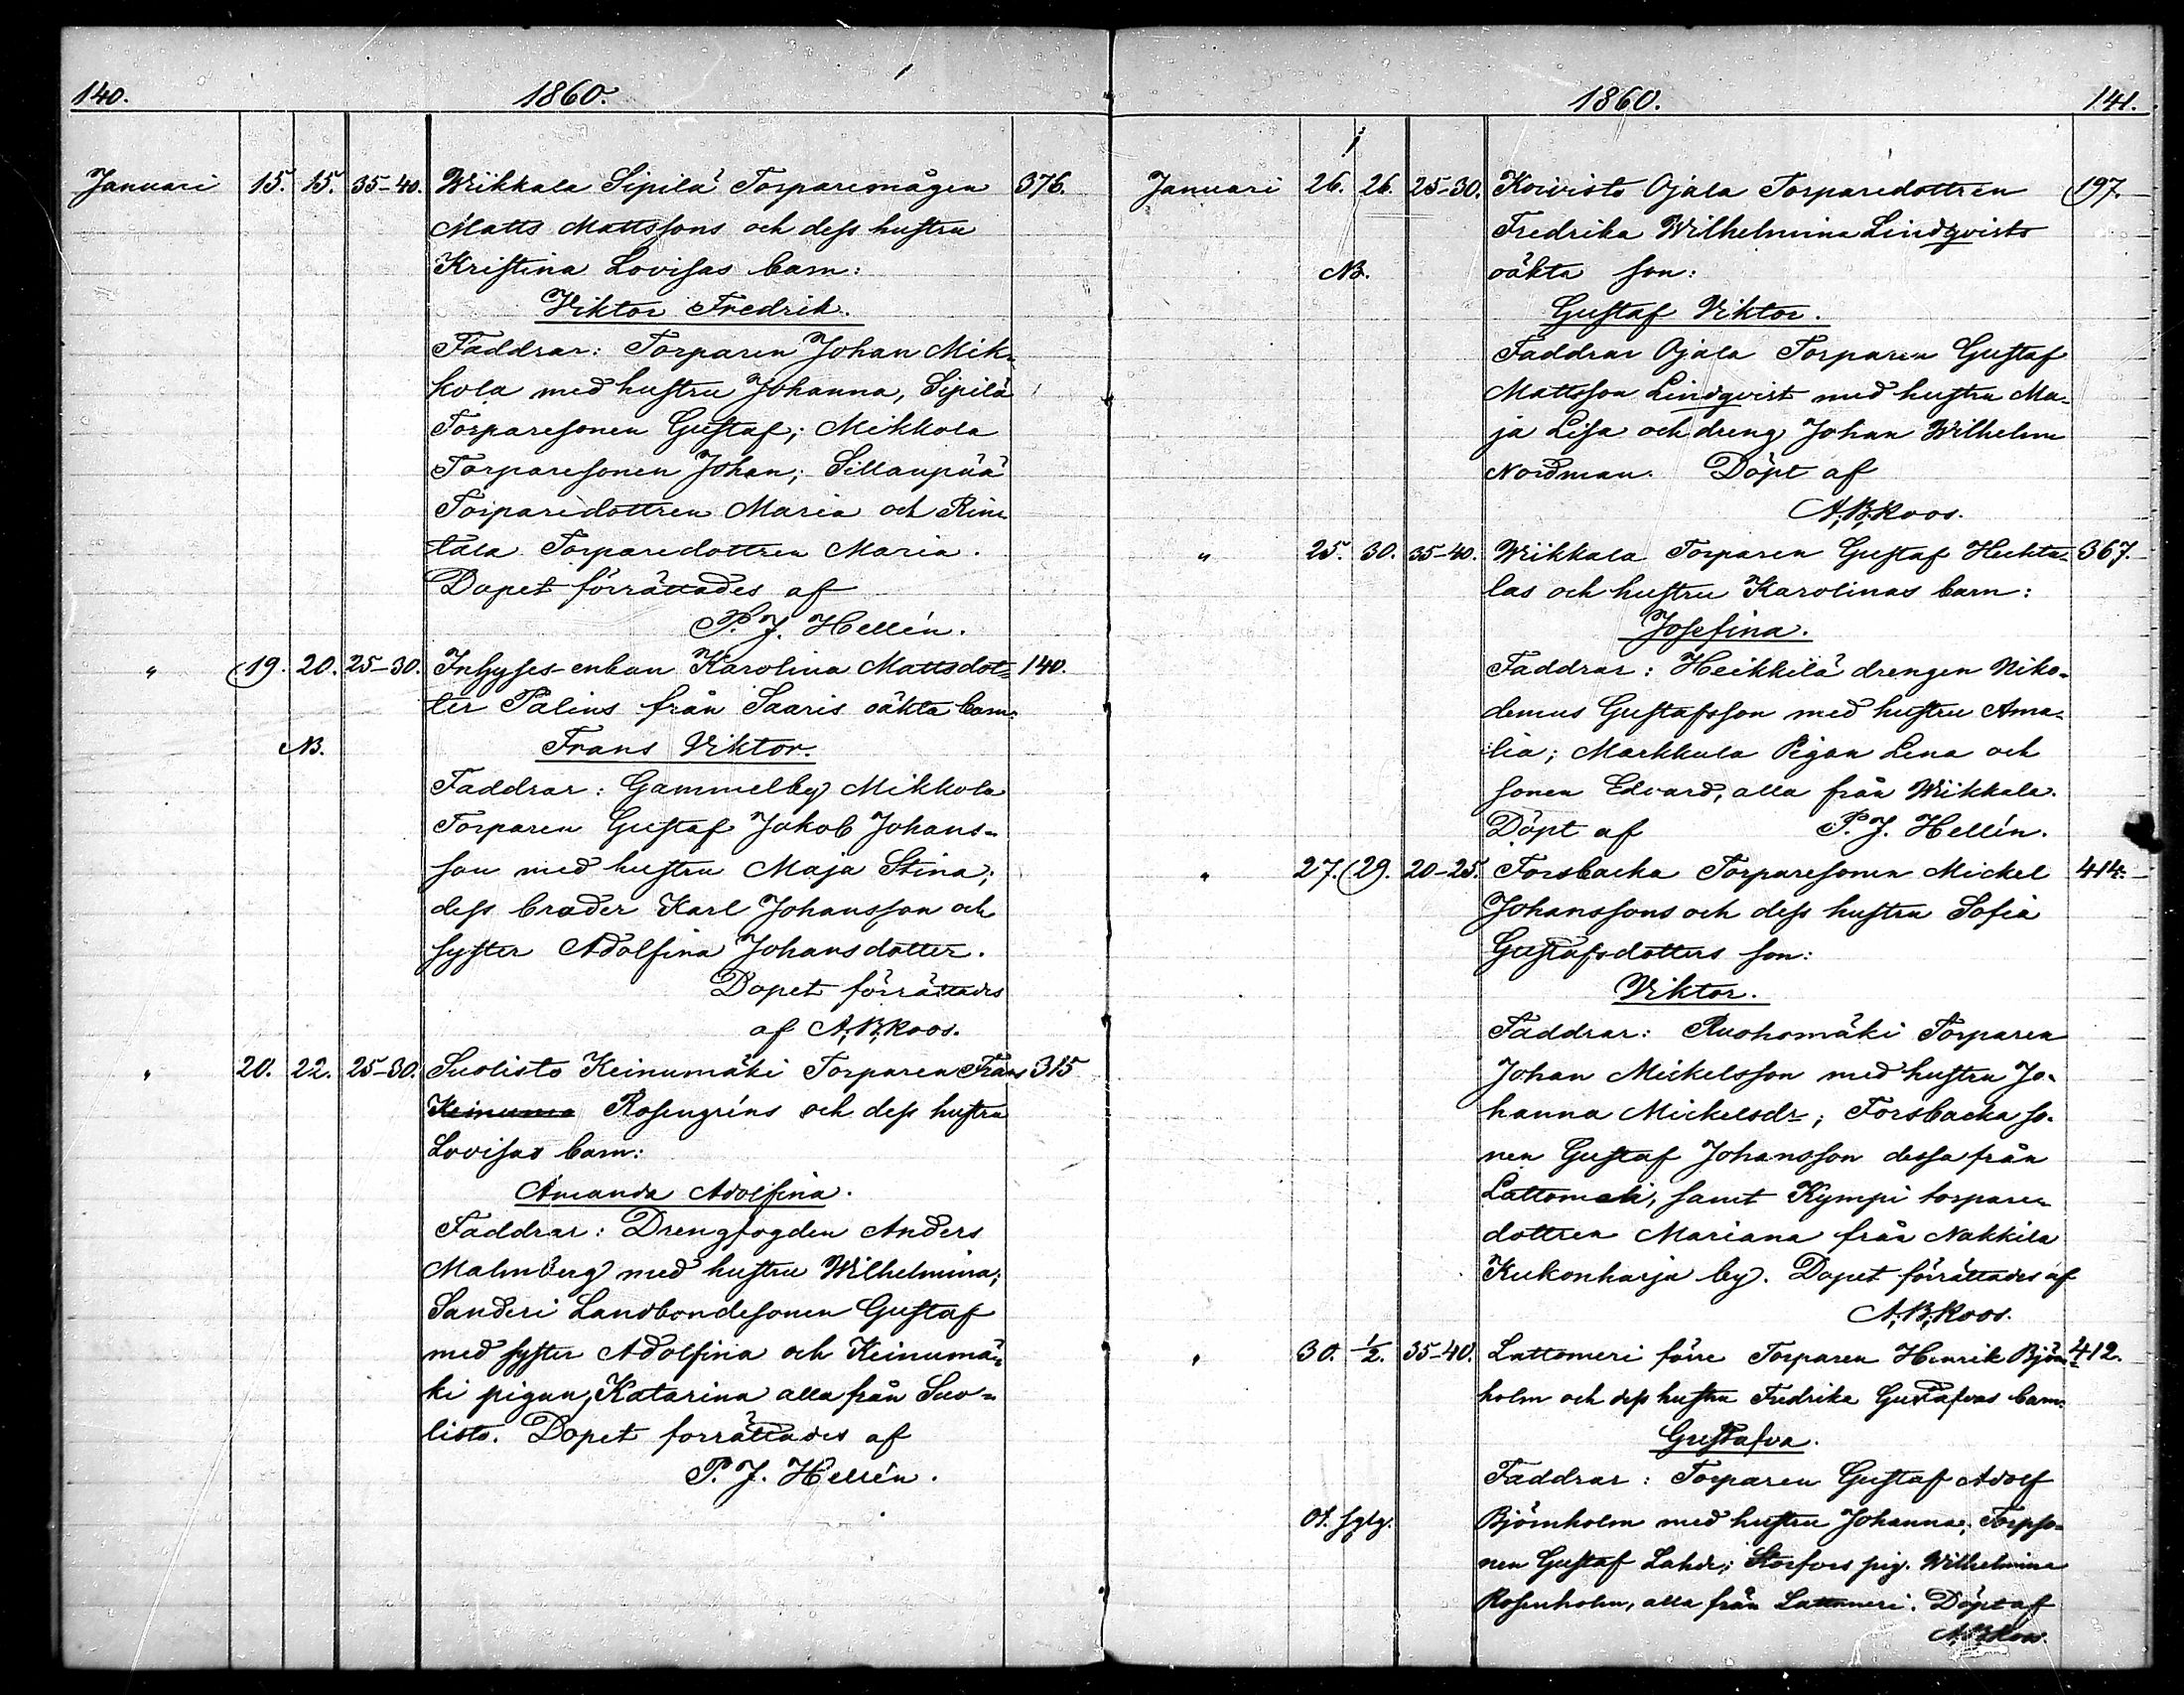 140. 1860.
Januari 15. 15. 35-40. Wiikkala Sipilä Torparemågen 376.
Matts Mattssons och dess hustru
Kristina Lovisas barn:
Viktor Fredrik.
Faddrar: Torparen Johan Mik-
kola med hustru Johanna, Sipilä
Torparesonen Gustaf; Mikkola
Torparesonen Johan; Sillanpää
Torparedottren Maria och Rin-
tala Torparedottren Maria.
Dopet förrättades af
P. J. Hellén.
" 19. 20. 25-30. Inhyses-enkan Karolina Mattsdot- 140.
ter Palins från Saaris oäkta barn:
NB. Frans Viktor.
Faddrar: Gammelby Mikkola
Torparen Gustaf Jakob Johans-
son med hustru Maja Stina;
dess broder Karl Johansson och
syster Adolfina Johansdotter.
Dopet förrättades
af A. B. Roos.
" 20. 22. 25-30. Suolisto Keinumäki Torparen Frans 315
Keinuma Rosengréns och dess hustru
Lovisas barn:
Amanda Adolfina.
Faddrar: Drengfogden Anders
Malmberg med hustru Wilhelmina;
Sanderi Landbondesonen Gustaf
med syster Adolfina och Keinumä-
ki pigan Katarina alla från Suo-
listo. Dopet forrättades af
P. J. Hellén.
1860. 141.
Januari 26. 26. 25-30. Koivisto Ojala Torparedottren 197.
Fredrika Wilhelmina Lindqvists
NB. oäkta son:
Gustaf Viktor.
Faddrar Ojala Torparen Gustaf
Mattsson Lindqvist med hustru Ma-
ja Lisa och dreng Johan Wilhelm
Nordman. Döpt af
A. B. Roos.
" 25. 30. 35-40. Wiikkala Torparen Gustaf Huhta- 367.
las och hustru Karolinas barn:
Josefina.
Faddrar: Heikkilä drengen Niko-
demus Gustafsson med hustru Ama-
lia; Markkula Pigan Lena och
sonen Edvard, alla från Wiikkala.
Döpt af P. J. Hellén.
" 27. 29. 20-25. Forsbacka Torparesonen Mickel 414.
Johanssons och dess hustru Sofia
Gustafsdotters son:
Viktor.
Faddrar: Ruohomäki Torparen
Johan Mickelsson med hustru Jo-
hanna Mickelsdr; Forsbacka so-
nen Gustaf Johansson dessa från
Lattomeri, samt Kympi torpare-
dottren Mariana från Nakkila
Kukonharja by. Dopet förrättades af
A. B. Roos.
" 30. 1/2. 35-40. Lattomeri förre Torparen Henrik Björn- 412.
holm och dess hustru Fredrika Gustafvas barn:
Gustafva.
Faddrar: Torparen Gustaf Adolf
Björnholm med hustru Johanna; Torpso-
nen Gustaf Lahdi; Storfors pig. Wilhelmina
Rosenholm, alla från Lattomeri. Döpt af
A. B. Roos.